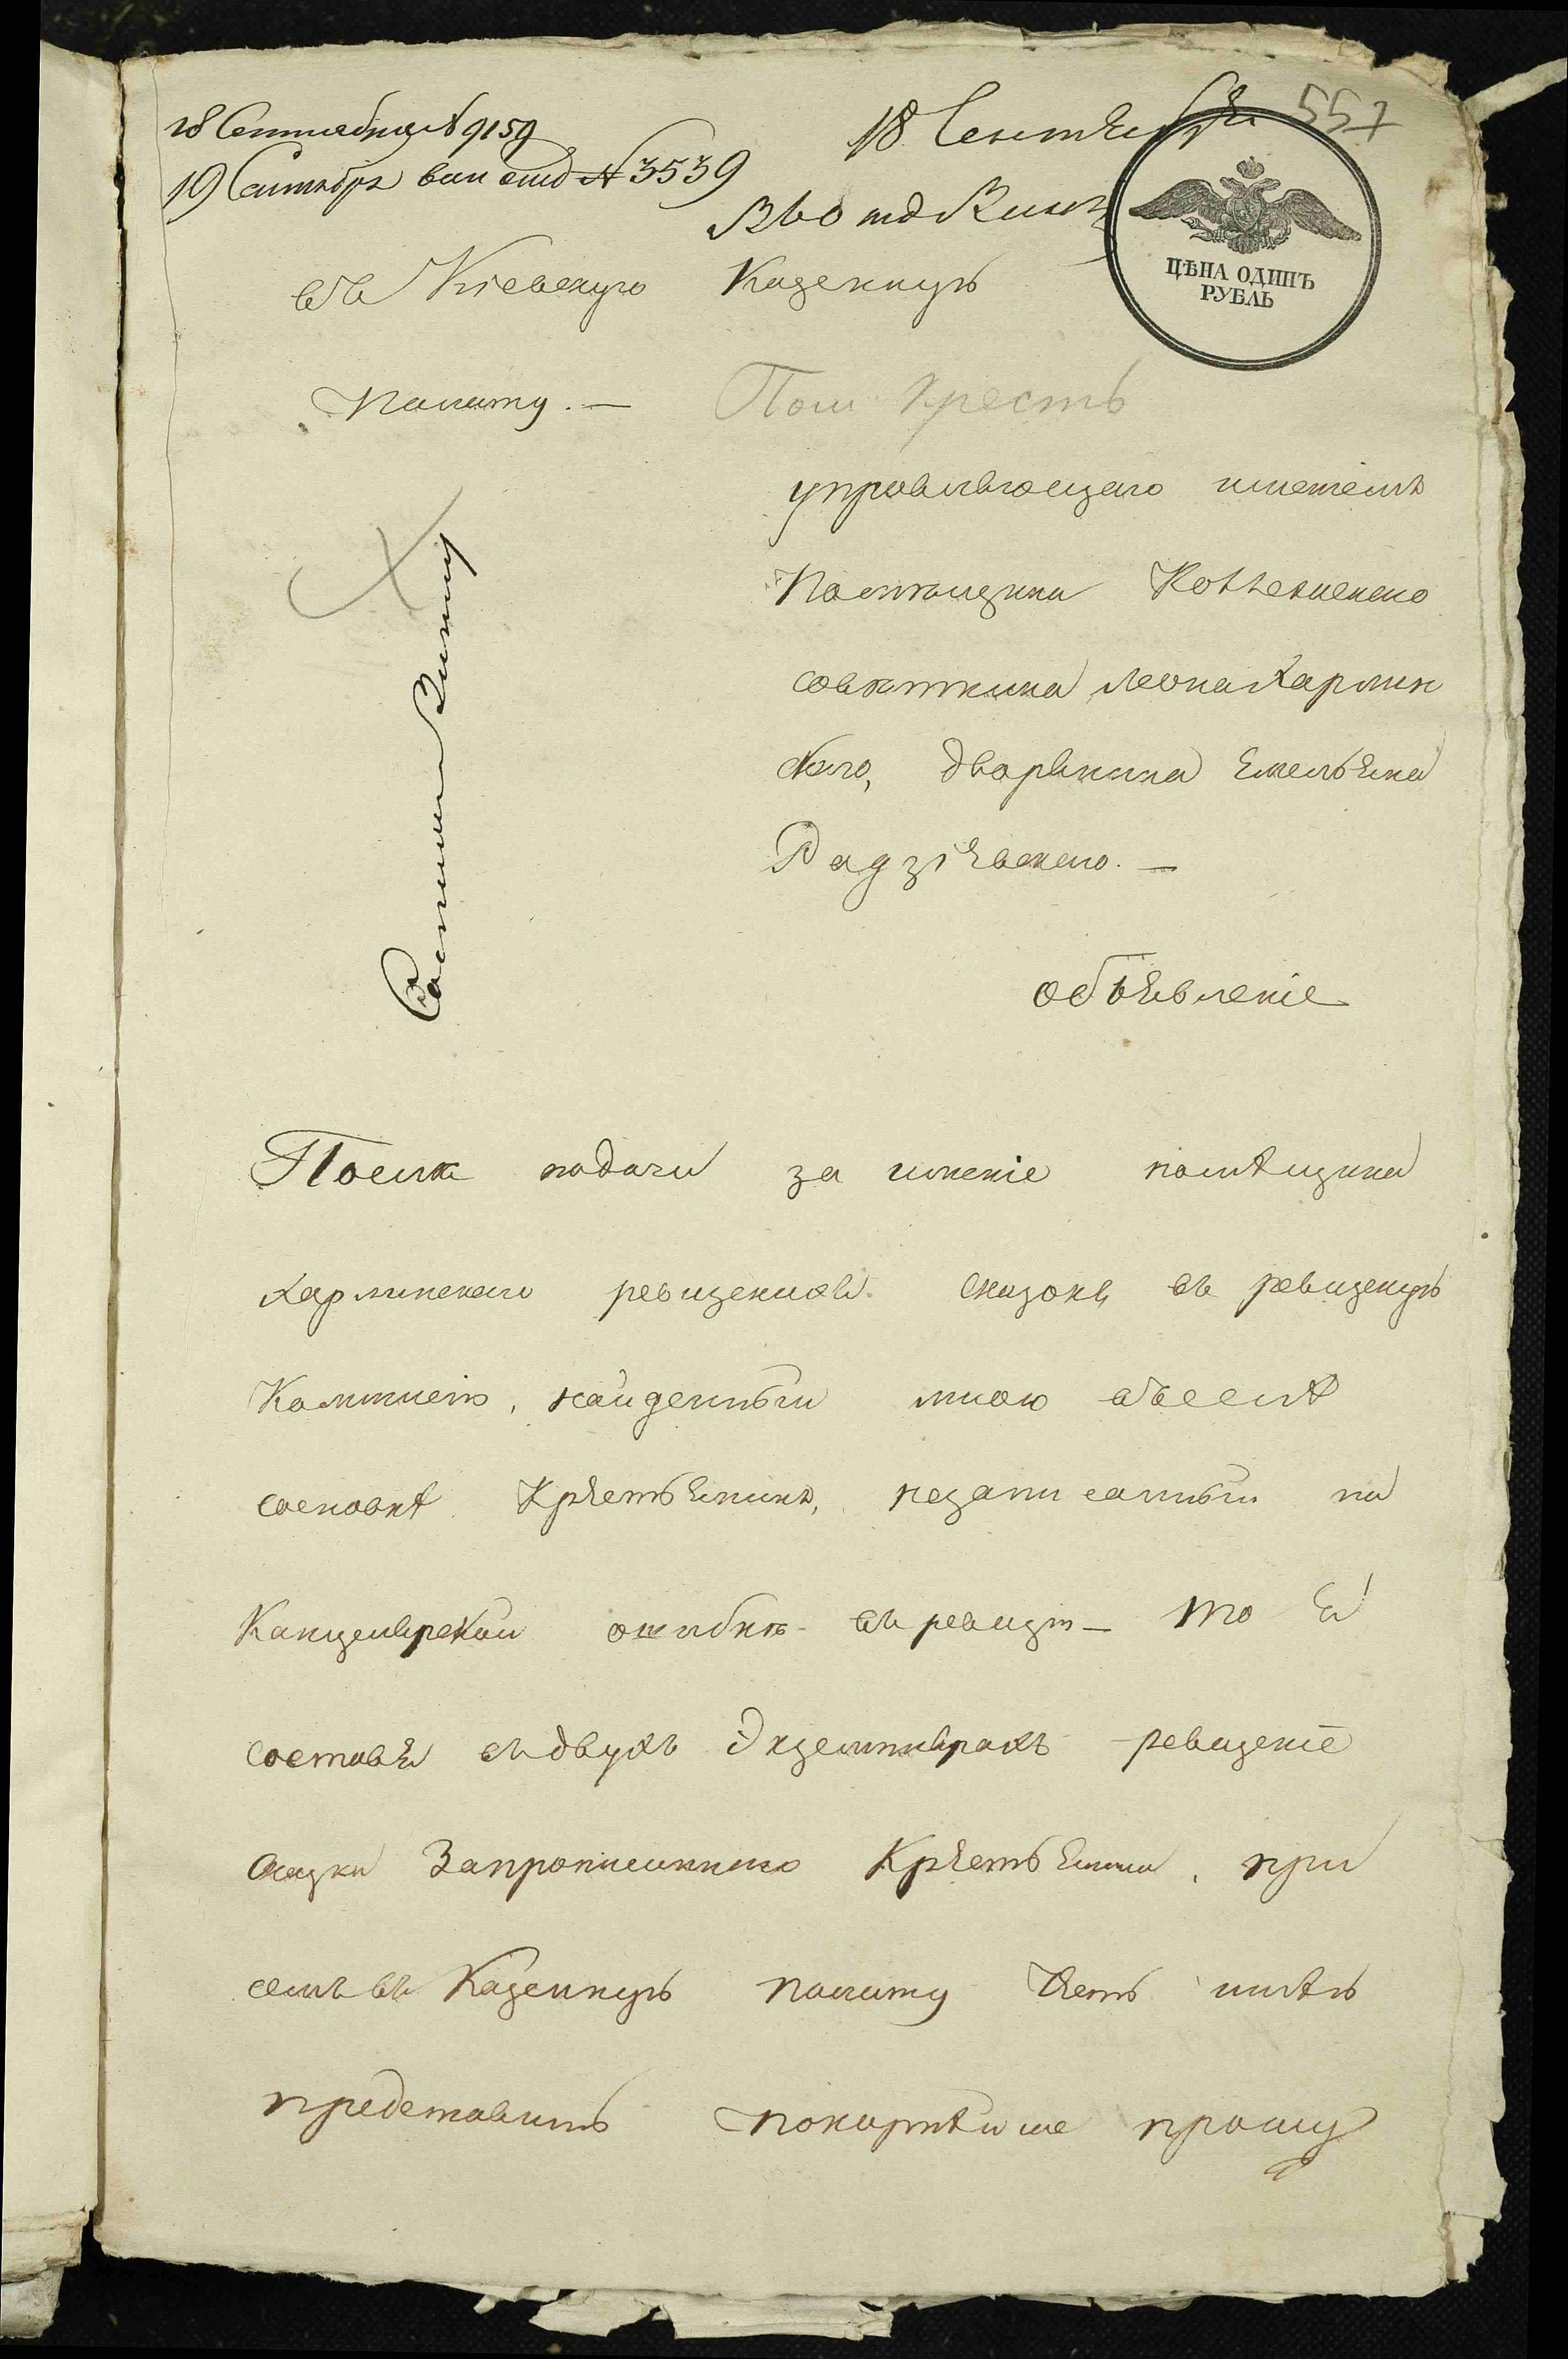 18 Сентября № 9159
19 Сентября в ки отд № 3539
18 Сентября 557
ЦѢНА ОДИНЪ
РУБЛЬ
въ Кіевскую Казенную
Палату. —
Пом Крест
управляющаго имѣніемъ
Помѣщика Коллежскаго
совѣтника Леона Кармин
скаго, дворянина Емельяна
Радзіевскаго. —
объявленіе
Послѣ подачи за имѣніе помѣщика
Карминскаго ревизскихъ сказокъ въ ревизскую
Комисію, найденный мною въ селѣ
Крестьянинъ, незаписанный по
Канцелярской ошибкѣ въ ревизію — то я
составя въ двухъ экземплярахъ ревизскіе
сказки Запрописаннаго Крестьянина, при
семъ въ Казенную Палату честь имѣю
представить покорнѣйше прошу